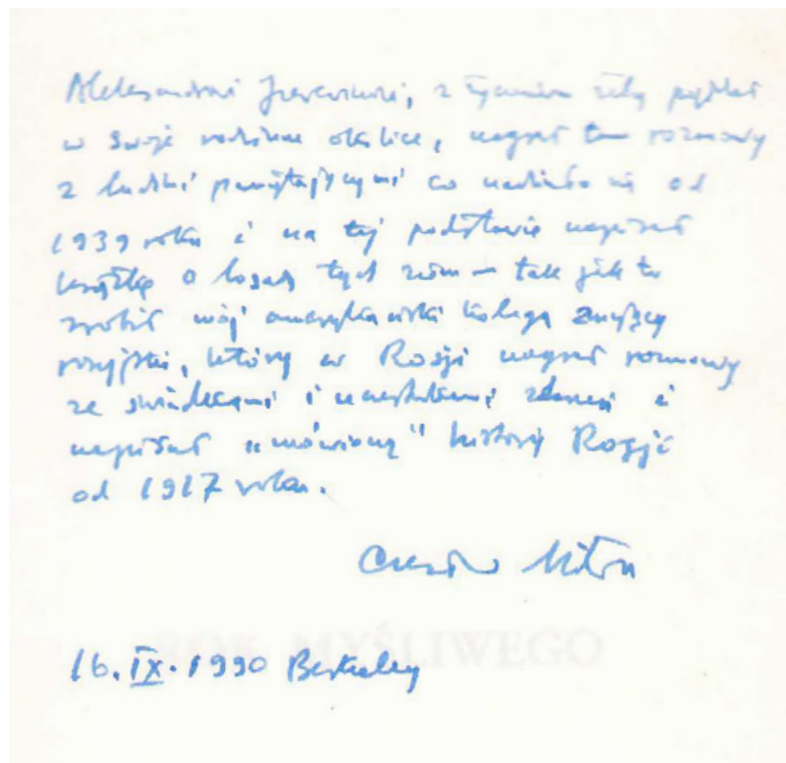 Aleksandrowi Jurewiczowi, z życzeniem żeby pojechał
w swoje rodzinne okolice, nagrał tam rozmowy
z ludźmi pamiętającymi co nadziało się od
1939 roku i na tej podstawie napisał
książkę o losach tych ziem – tak jak to
zrobił mój amerykański kolega znający
rosyjski, który w Rosji nagrał rozmowy
ze świadkami i uczestnikami zdarzeń i
napisał „mówioną" historię Rosji
od 1917 roku.
Czesław Miłosz
ROK MYŚLIWEGO
16. IX. 1990 Berkeley